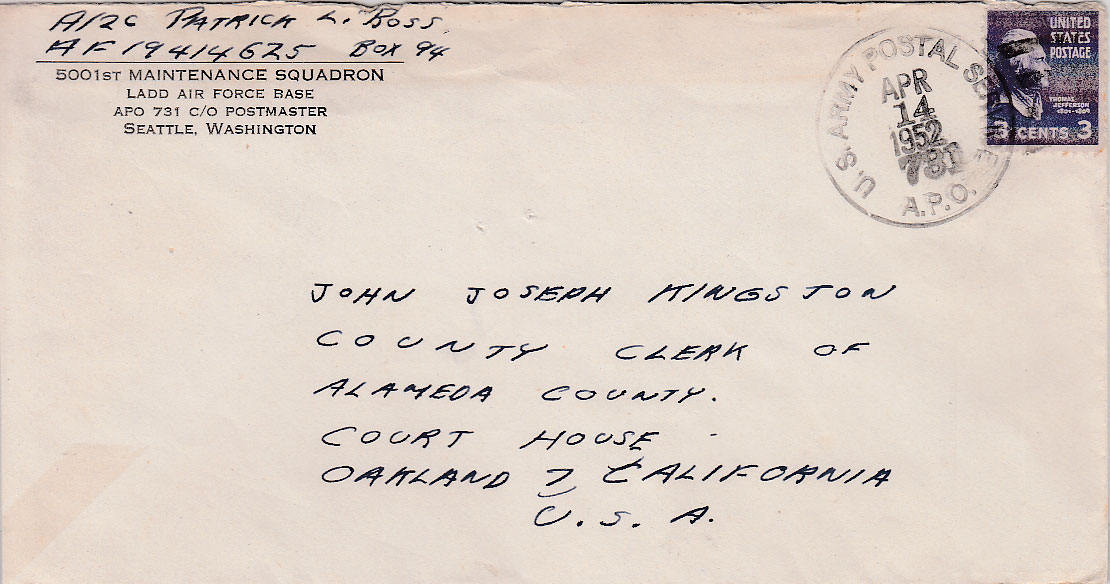 A/2C PATRICK L. ROSS.
AF19414625 BOX 94
5001ST MAINTENANCE SQUADRON
LADD AIR FORCE BASE
APO 731 C/O POSTMASTER
SEATTLE, WASHINGTON
U.S. ARMY POSTAL SERVICE
APR
14
1952
731
A.P.O.
UNITED
STATES
POSTAGE
THOMAS
JEFFERSON
1801-1809
3 CENTS 3
JOHN JOSEPH KINGSTON
COUNTY CLERK OF
ALAMEDA COUNTY.
COURT HOUSE
OAKLAND 7 CALIFORNIA
U.S.A.